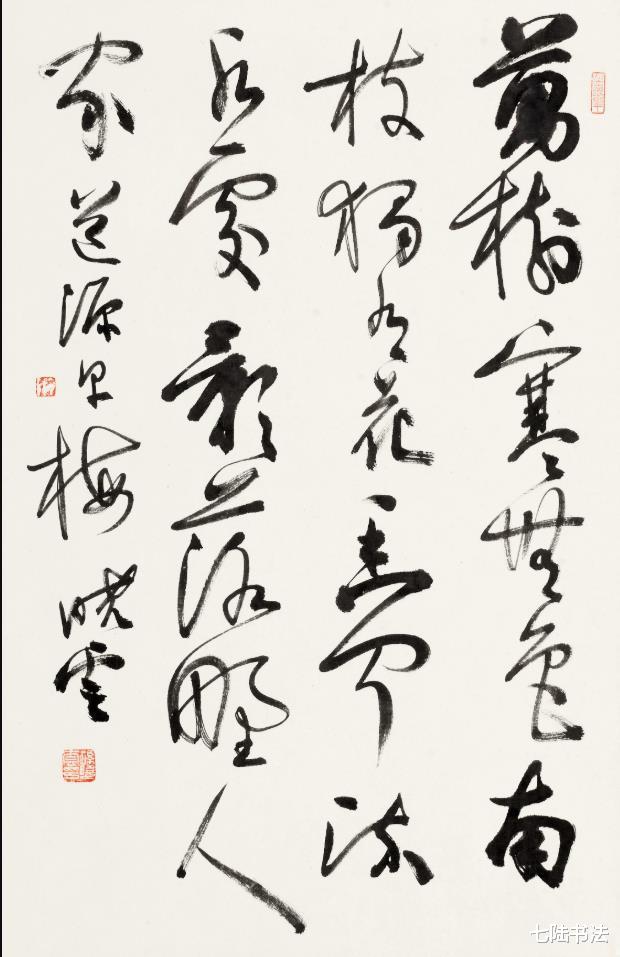 萬樹寒無色南
枝獨有花香聞流
水處影落野人
家 道源早梅 曉雲
七陆书法